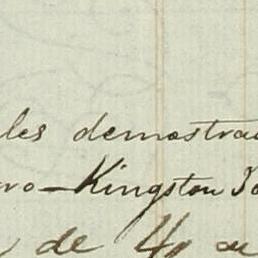 les demostra
ro-Kingston
de 4